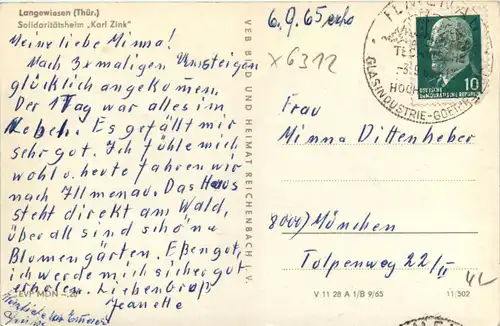 Langewiesen (Thür.)
Solidaritätsheim „Karl Zink"
Meine liebe Minna!
Nach 3x maligen Umsteigen
glücklich angekommen.
Der 1 Tag war alles im
Leben. Es gefällt mir
sehr gut. Ich fühle mich
wohl u. heute fahren wir
nach Illmenau. Das Haus
steht direkt am Wald,
überall sind schöne
Blumengärten. Eßen gut,
ich werde mich sicher gut
erholen. Liebengruß
Jeanette
EVP MDN –,20
VEB BILD UND HEIMAT REICHENBACH I. V.
6.9.65
x 6312
GLASINDUSTRIE
10
DEUTSCHE
DEMOKRATISCHE REPUBLIK
Frau
Minna Dittenheber
8000) München
Tulpenweg 22/II
V 11 28 A 1/B 9/65
11/502